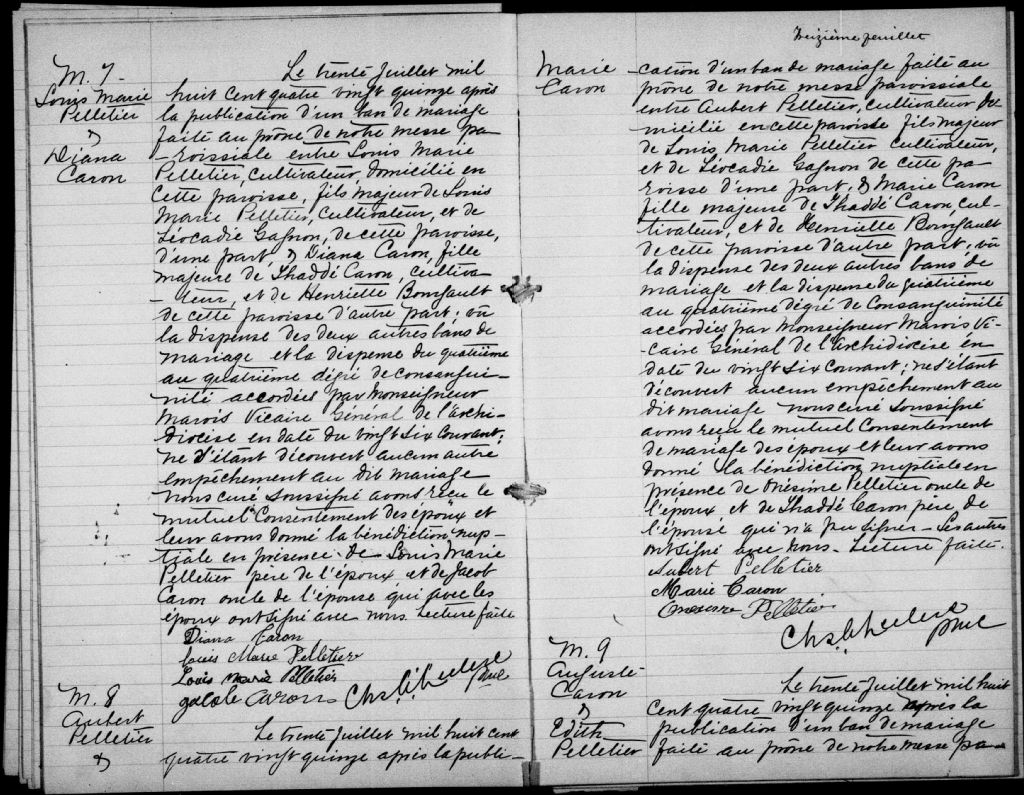 M. 7
Louis Marie
Pelletier
&
Diana
Caron
Le trente Juillet mil
huit cent quatre vingt quinze après
la publication d'un ban de mariage
faite au prône de notre messe pa-
-roissiale entre Louis Marie
Pelletier, cultivateur, domicilié en
cette paroisse, fils majeur de Louis
Marie Pelletier, cultivateur, et de
Léocadie Gagnon, de cette paroisse,
d'une part, & Diana Caron, fille
majeure de Thaddé Caron, cultiva-
-teur, et de Henriette Bourgault
de cette paroisse d'autre part; vû
la dispense des deux autres bans de
mariage et la dispense du quatrième
au quatrième dégré de consangui-
-nité accordées par Monseigneur
Marois Vicaire Général de l'archi-
diocèse en date du vingt six courant;
ne s'étant découvert aucun autre
empêchement au dit mariage
nous curé soussigné avons reçu le
mutuel consentement des époux et
leur avons donné la bénédiction nup-
-tiale en présence de Louis Marie
Pelletier père de l'époux, et de Jacob
Caron oncle de l'épouse qui avec les
époux ont signé avec nous. Lecture faite
Diana Caron
Louis Marie Pelletier
Louis Marie Pelletier
Caron
M. 8
Aubert
Pelletier
&
Le trente Juillet mil huit cent
quatre vingt quinze après la publi-
Treizième feuillet
Marie
Caron
-cation d'un ban de mariage faite au
prône de notre messe paroissiale
entre Aubert Pelletier, cultivateur do-
micilié en cette paroisse fils majeur
de Louis Marie Pelletier cultivateur,
et de Léocadie Gagnon de cette pa-
roisse d'une part, & Marie Caron
fille majeure de Thaddé Caron, cul-
-tivateur, et de Henriette Bourgault
de cette paroisse d'autre part; vû
la dispense des deux autres bans de
mariage et la dispense du quatrième
au quatrième dégré de consanguinité
accordées par Monseigneur Marois Vi-
-caire Général de l'archidiocèse en
date du vingt six courant; ne s'étant
découvert aucun empêchement au
dit mariage nous curé soussigné
avons reçu le mutuel consentement
de mariage des époux et leur avons
donné la bénédiction nuptiale en
présence de Onésime Pelletier oncle de
l'époux et de Thaddé Caron père de
l'épouse qui n'a pu signer - Les autres
ont signé avec nous - Lecture faite.
Aubert Pelletier
Marie Caron
Pelletier
M. 9
Auguste
Caron
&
Edith
Pelletier
Le trente Juillet mil huit
cent quatre vingt quinze après la
publication d'un ban de mariage
faite au prône de notre messe pa-